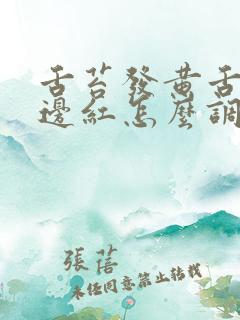 舌苔發黄舌
邊紅怎麼調
張蓓
未经同意禁止转载